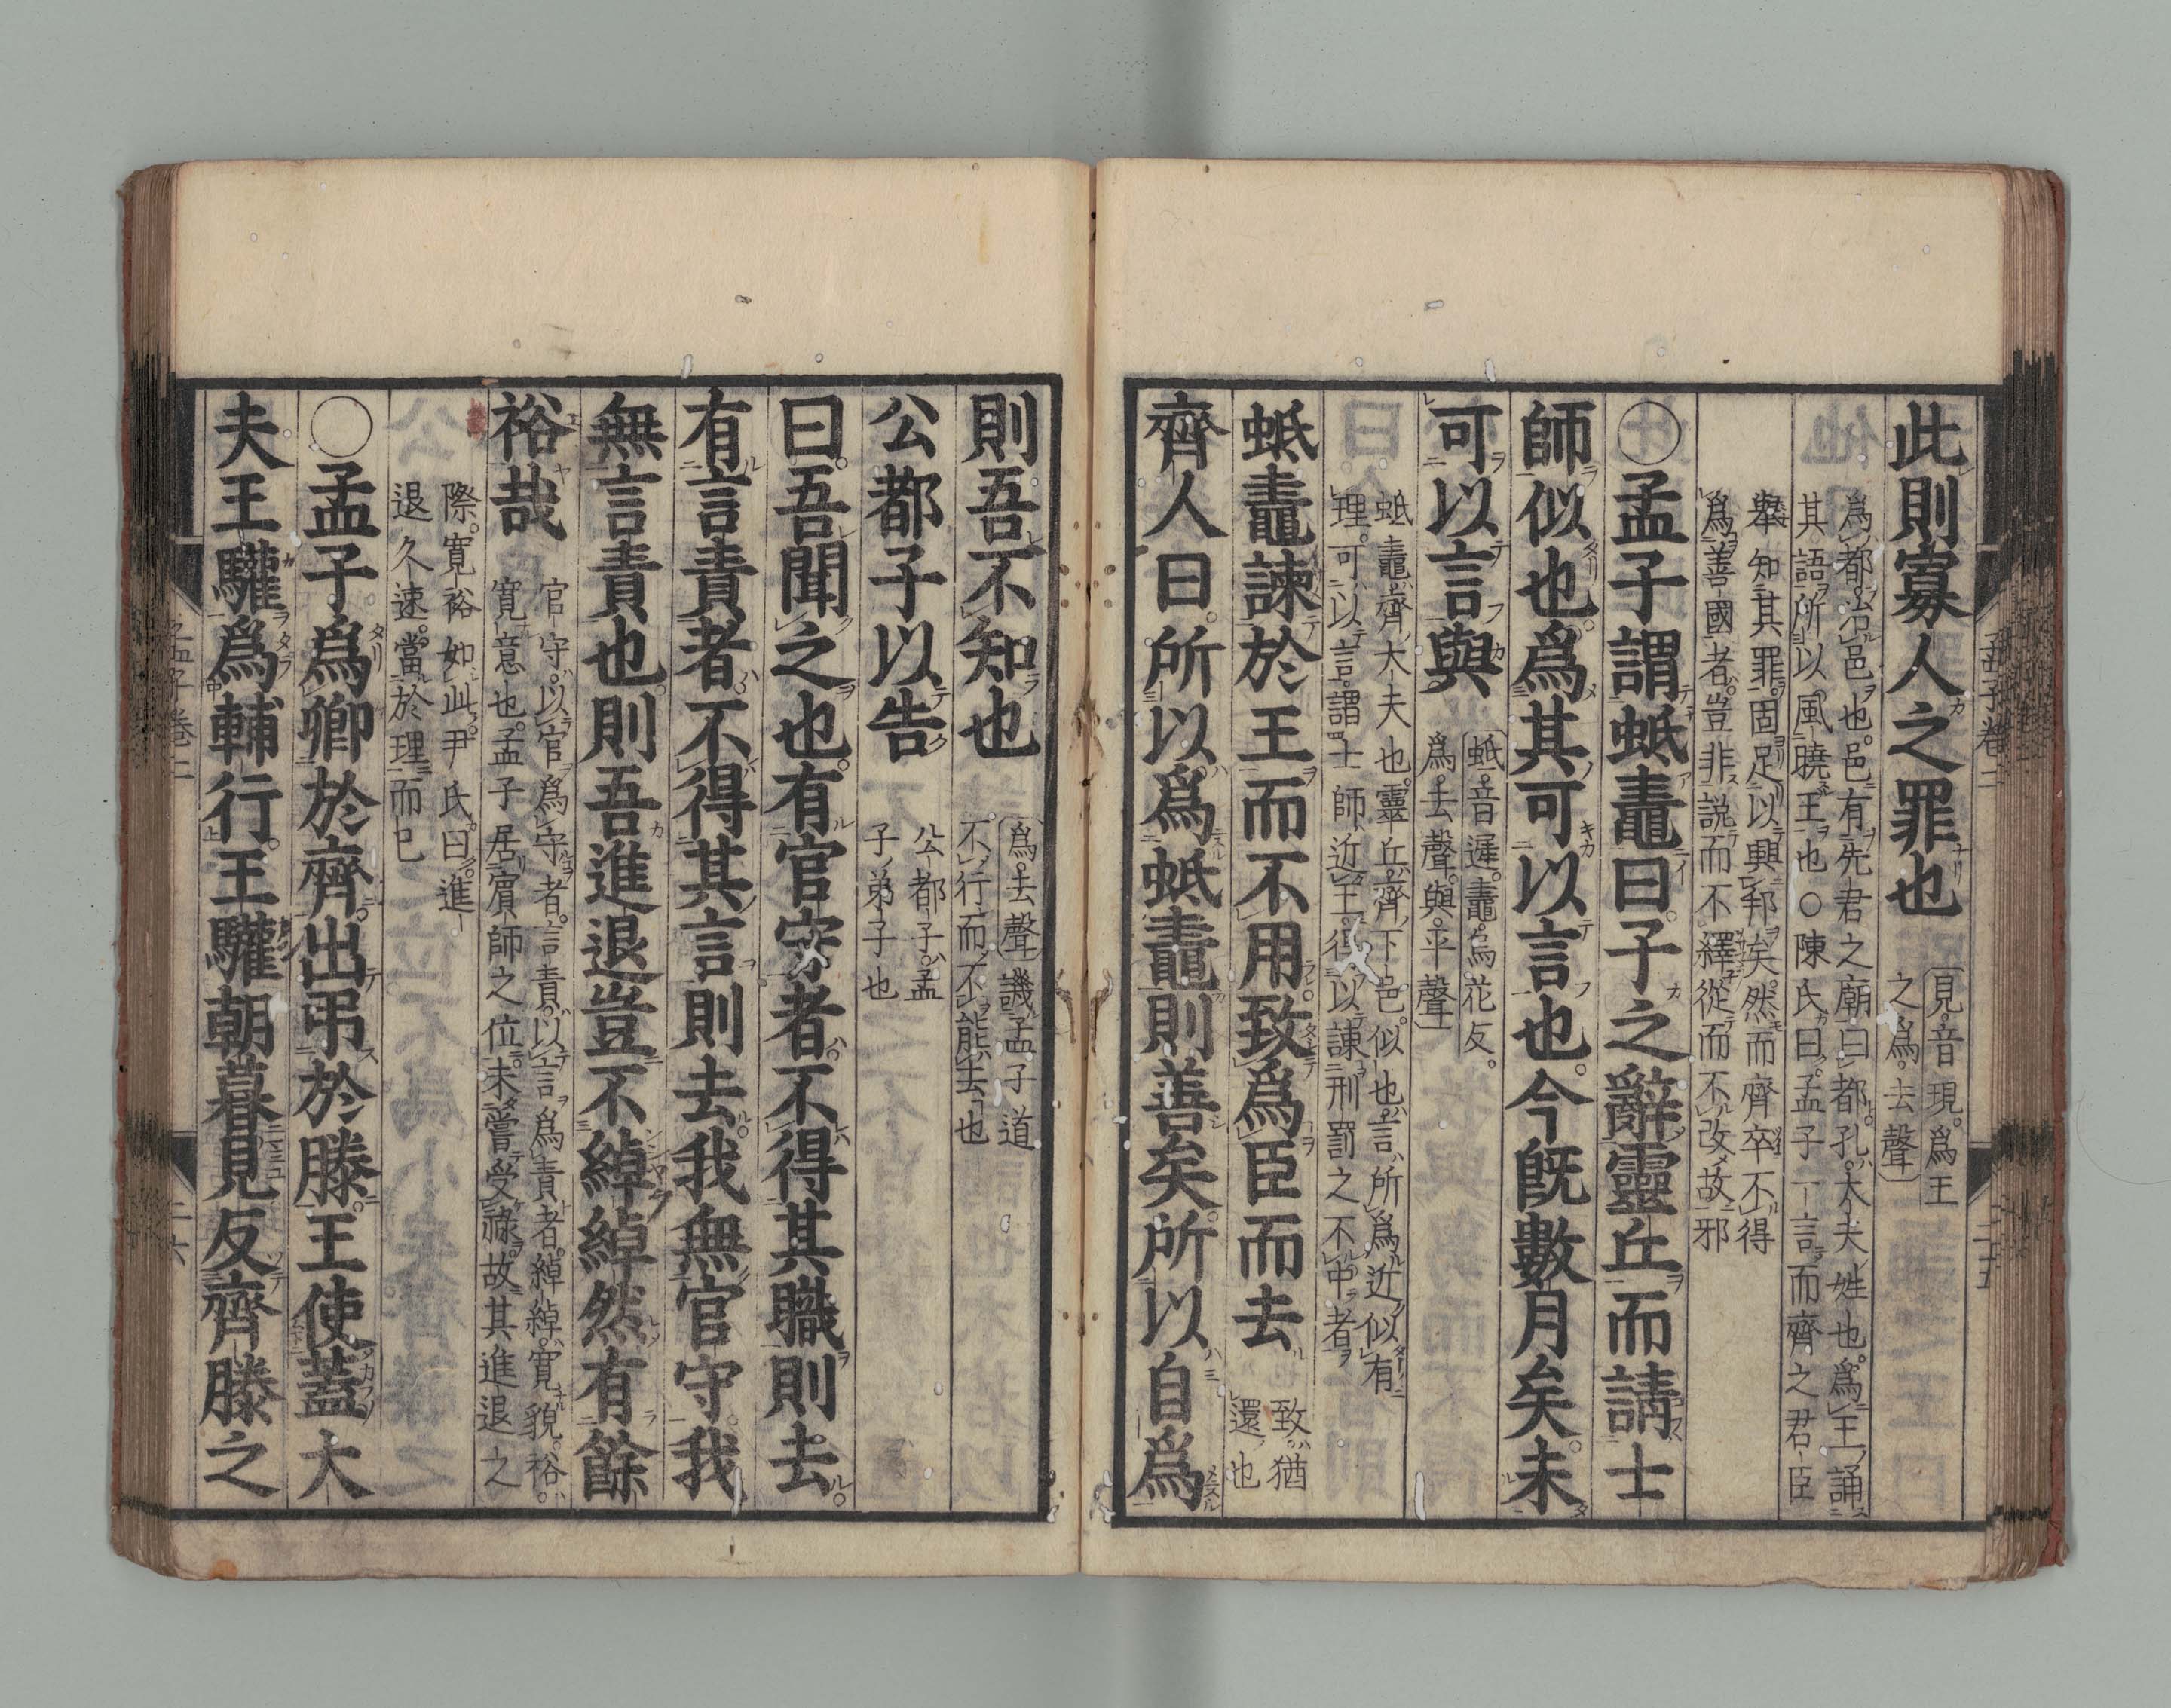 此則寡人之罪也
見音現爲王
之爲去聲
爲都治邑也邑有先君之廟曰都孔大夫姓也爲王誦
其語所以風曉王也○陳氏曰孟子一言而齊之君臣
擧知其罪固足以興邦矣然而齊卒不得
爲善國者豈非説而不繹從而不改故邪
○孟子謂蚳鼃曰子之辭靈丘而請士
師似也爲其可以言也今旣數月矣未
可以言與
蚳音遲鼃烏花反
爲去聲與平聲
蚳鼃齊大夫也靈丘齊下邑似也言所爲近似有
理可以言謂士師近王得以諫刑罰之不中者
蚳鼃諫於王而不用致爲臣而去
致猶
還也
齊人曰所以爲蚳鼃則善矣所以自爲
則吾不知也
爲去聲譏孟子道
不行而不能去也
公都子以告
公都子孟
子弟子也
曰吾聞之也有官守者不得其職則去
有言責者不得其言則去我無官守我
無言責也則吾進退豈不綽綽然有餘
裕哉
官守以官爲守者言責以言爲責者綽綽寬貌裕
寬意也孟子居賓師之位未嘗受祿故其進退之
際寬裕如此尹氏曰進
退久速當於理而已
○孟子爲卿於齊出弔於滕王使蓋大
夫王驩爲輔行王驩朝暮見反齊滕之
孟子卷二
二十五
孟子卷二
二十六